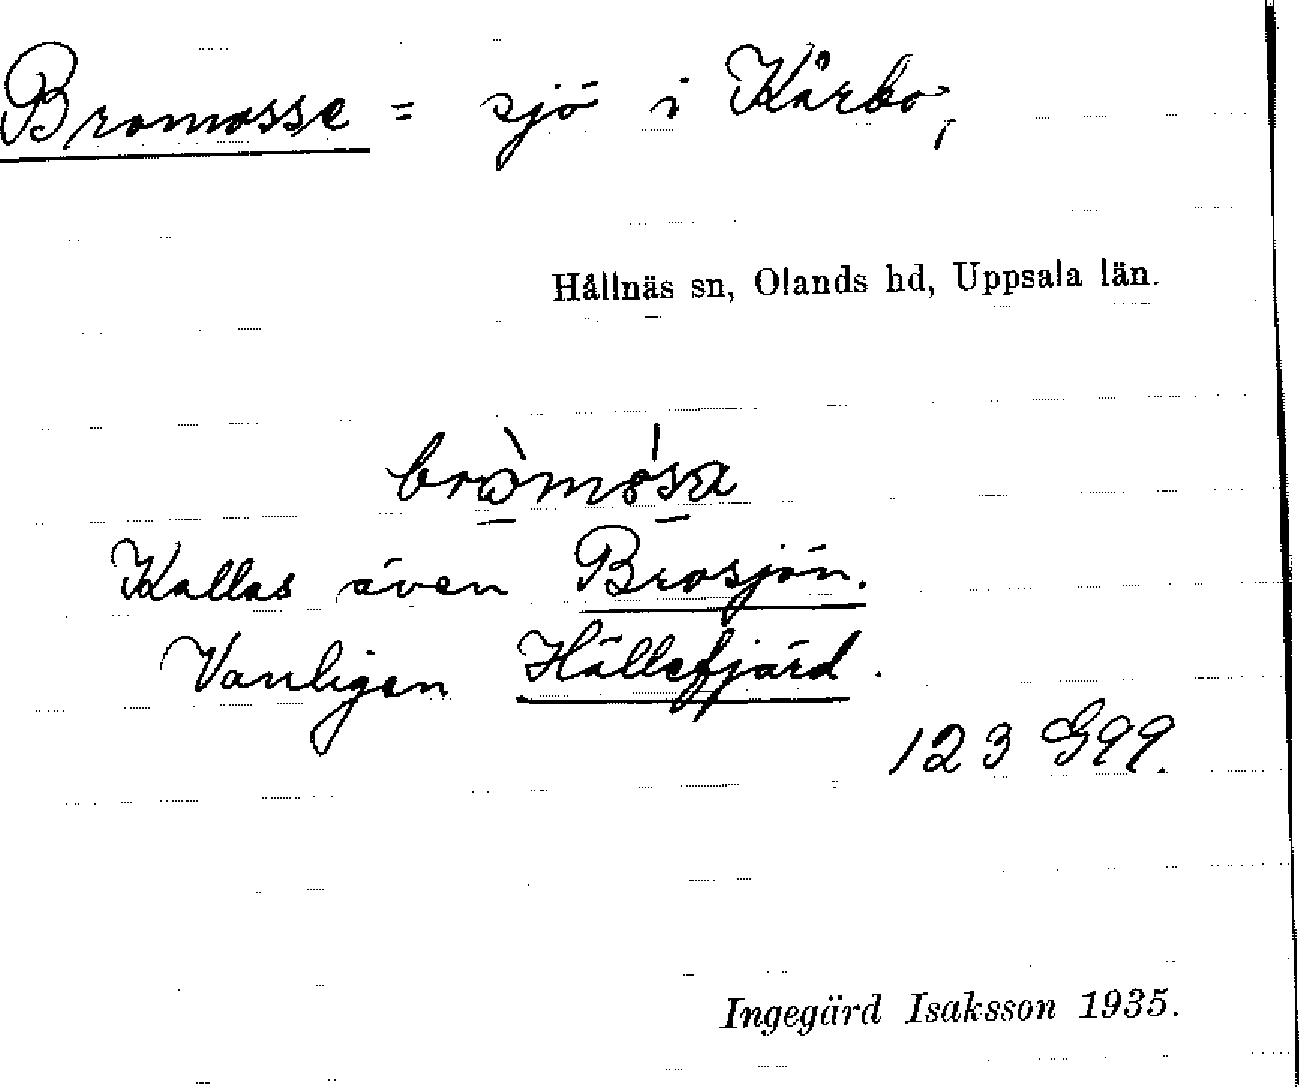 Bromosse = sjö i Kårbo,
Hållnäs sn, Olands hd, Uppsala län.
Kallas även Brosjön.
Vanligen Hällefjärd.
123 G99.
Ingegärd Isaksson 1935.